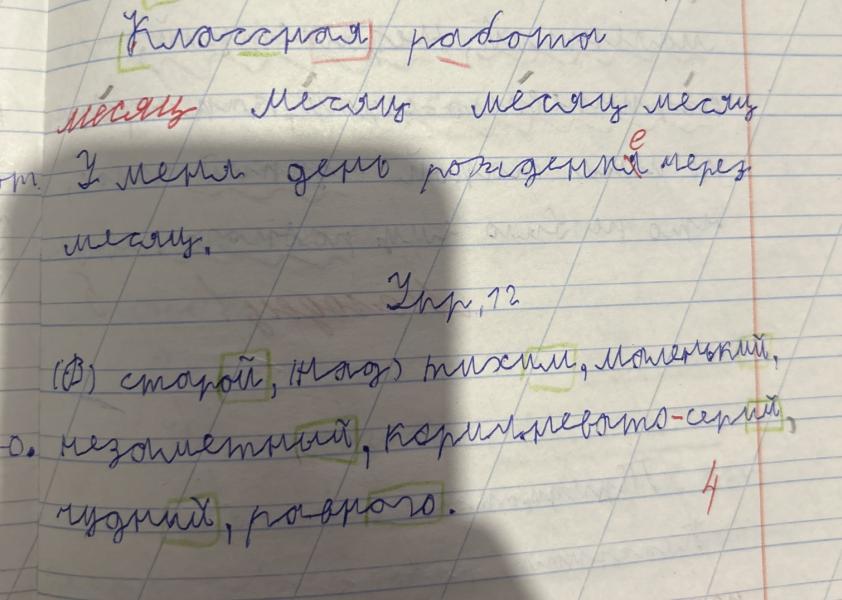 Классная работа
месяц месяц месяц месяц
У меня день рождение через
месяц.
Упр. 12
(В) старой, (над) тихим, маленький,
незаметный, коричневато-серий,
чудний, равного.
4